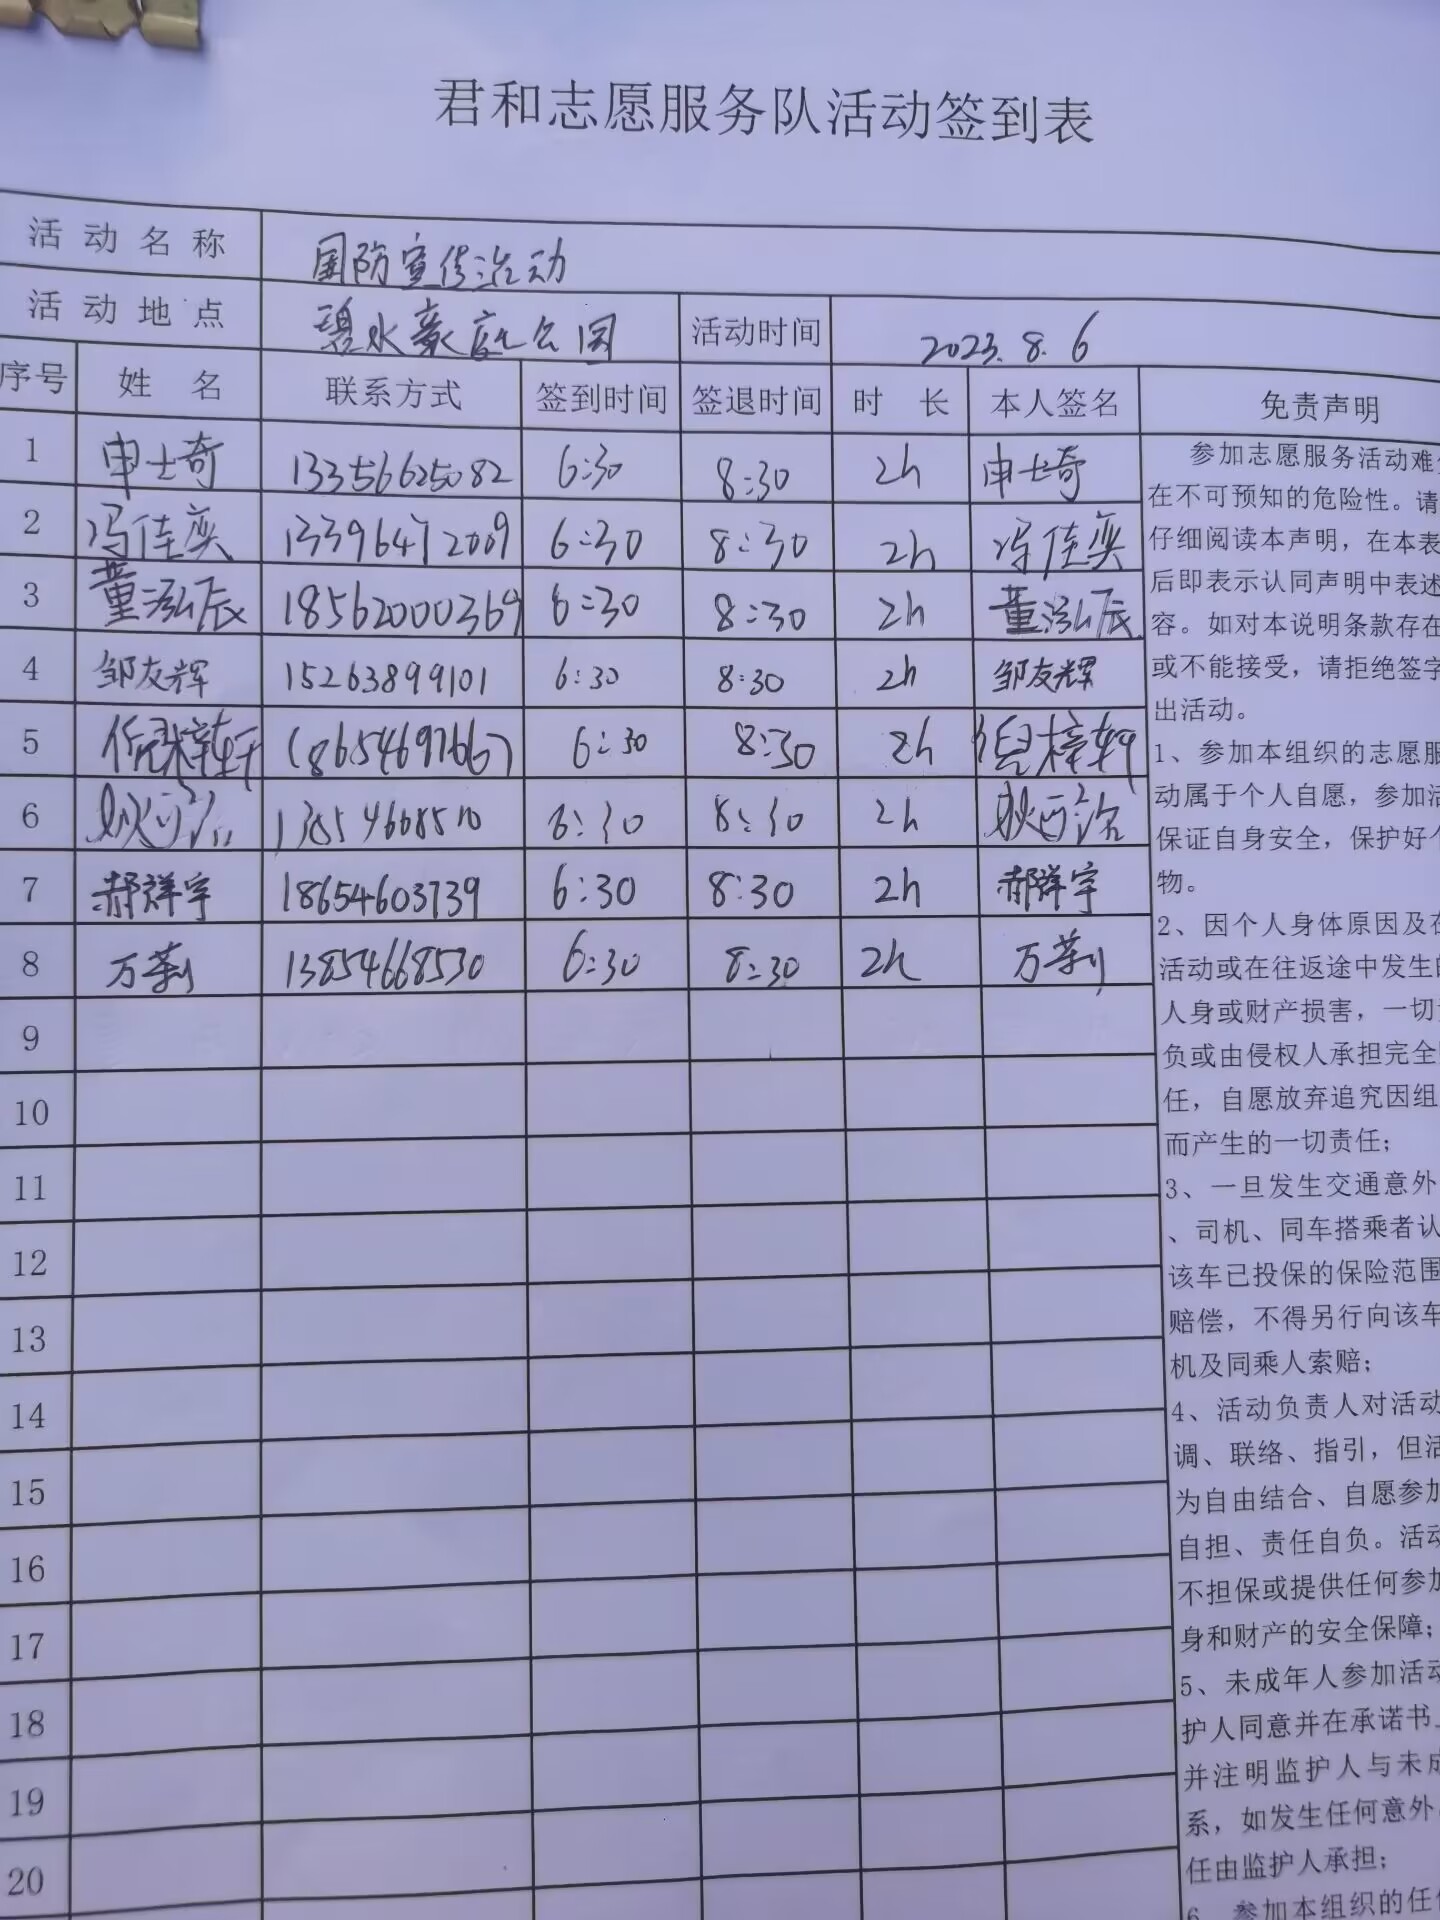 君和志愿服务队活动签到表
活动名称 国防宣传活动
活动地点 碧水豪庭公园 活动时间 2023.8.6
序号 姓名 联系方式 签到时间 签退时间 时长 本人签名 免责声明
1 申士奇 13356625082 6:30 8:30 2h 申士奇
2 冯佳奕 13396472009 6:30 8:30 2h 冯佳奕
3 董泓辰 18562000369 6:30 8:30 2h 董泓辰
4 邹友辉 15263899101 6:30 8:30 2h 邹友辉
5 倪梓轩 18654697667 6:30 8:30 2h 倪梓轩
6 6:30 8:30 2h
7 郝祥宇 18654603739 6:30 8:30 2h 郝祥宇
8 万荣刚 13854668530 6:30 8:30 2h 万荣刚
9
10
11
12
13
14
15
16
17
18
19
20
参加志愿服务活动难
在不可预知的危险性。请
仔细阅读本声明，在本表
后即表示认同声明中表述
容。如对本说明条款存在
或不能接受，请拒绝签字
出活动。
1、参加本组织的志愿服
动属于个人自愿，参加活
保证自身安全，保护好个
物。
2、因个人身体原因及在
活动或在往返途中发生的
人身或财产损害，一切
负或由侵权人承担完全
任，自愿放弃追究因组
而产生的一切责任；
3、一旦发生交通意外
、司机、同车搭乘者认
该车已投保的保险范围
赔偿，不得另行向该车
机及同乘人索赔；
4、活动负责人对活动
调、联络、指引，但活
为自由结合、自愿参加
自担、责任自负。活动
不担保或提供任何参加
身和财产的安全保障；
5、未成年人参加活动
护人同意并在承诺书上
并注明监护人与未成
系，如发生任何意外
任由监护人承担；
6、参加本组织的任